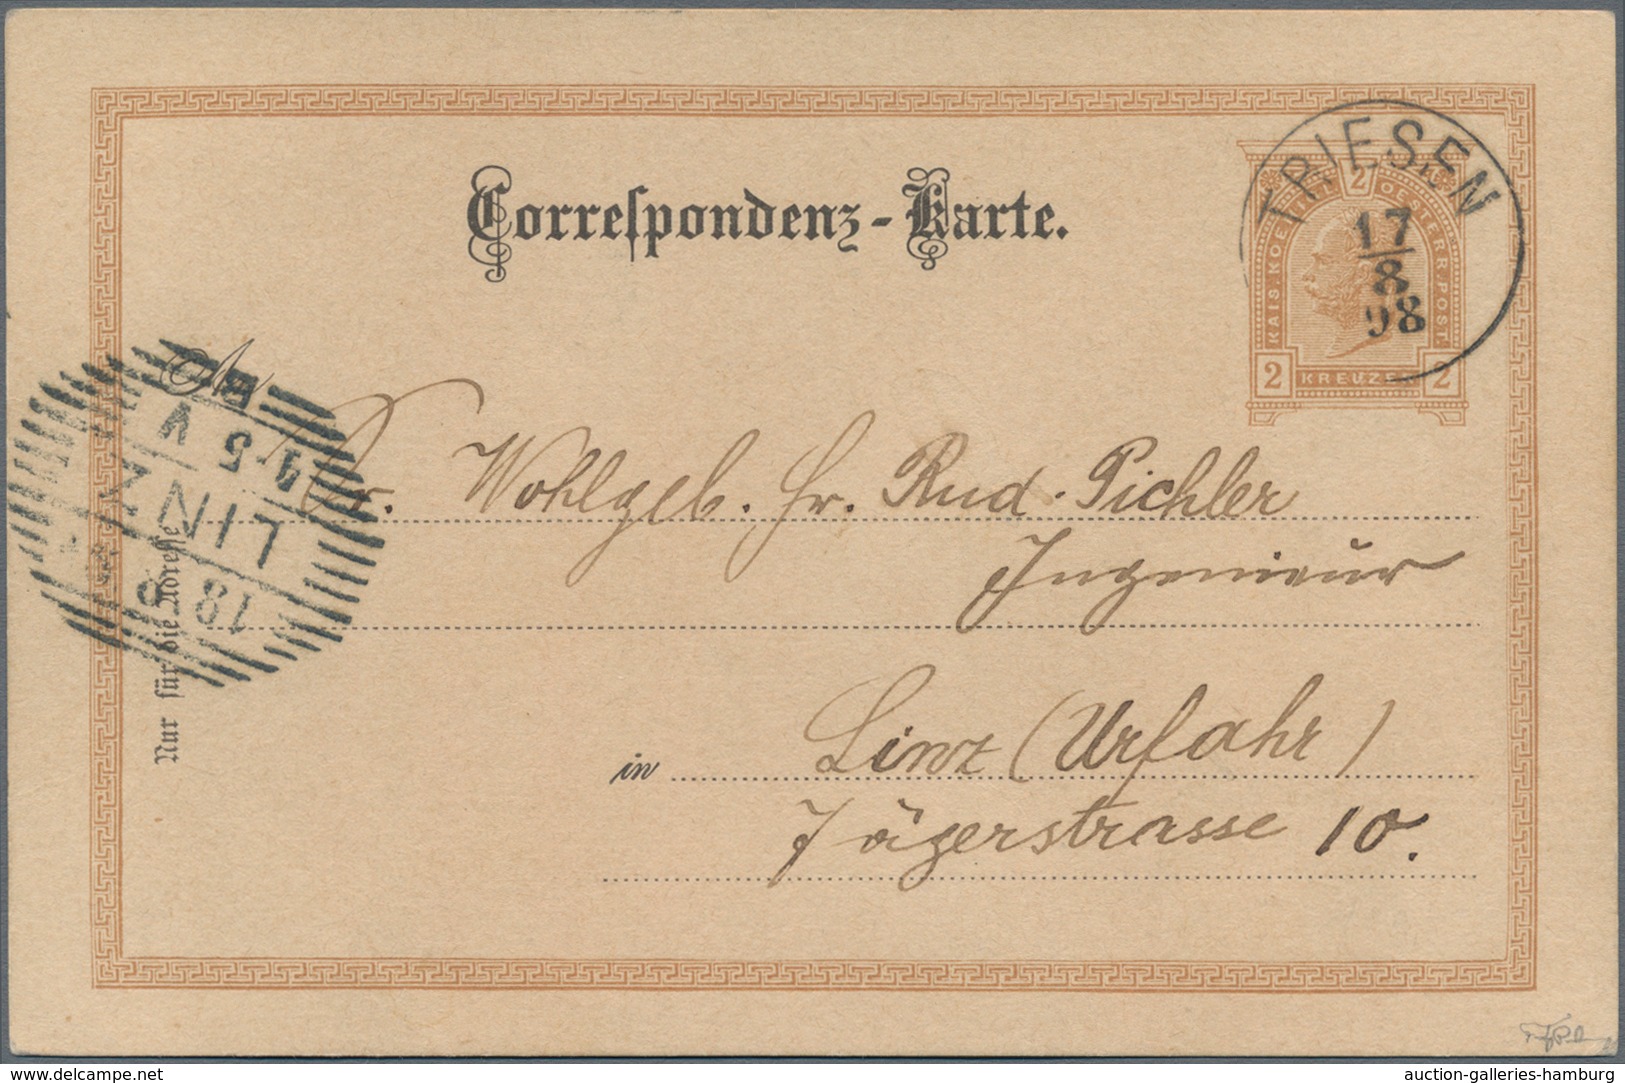 Correspondenz-Karte.
TRIESEN
17
8
98
KAIS. KOENIGL. 2 OESTERR. POST.
2 KREUZER 2
An
Sr. Wohlgeb. Hr. Rud. Pichler
Ingenieur
in Linz (Urfahr)
Jägerstrasse 10.
Nur für die Adresse
18 8
LINZ
4-5 V
delcampe.net
auction-galleries-hamburg